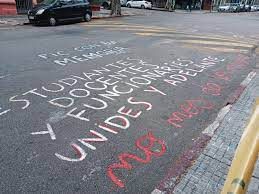 FIC CON LA
MEMORIA
ESTUDIANTES
DOCENTES
Y FUNCIONARIES
UNIDES Y ADELANTE